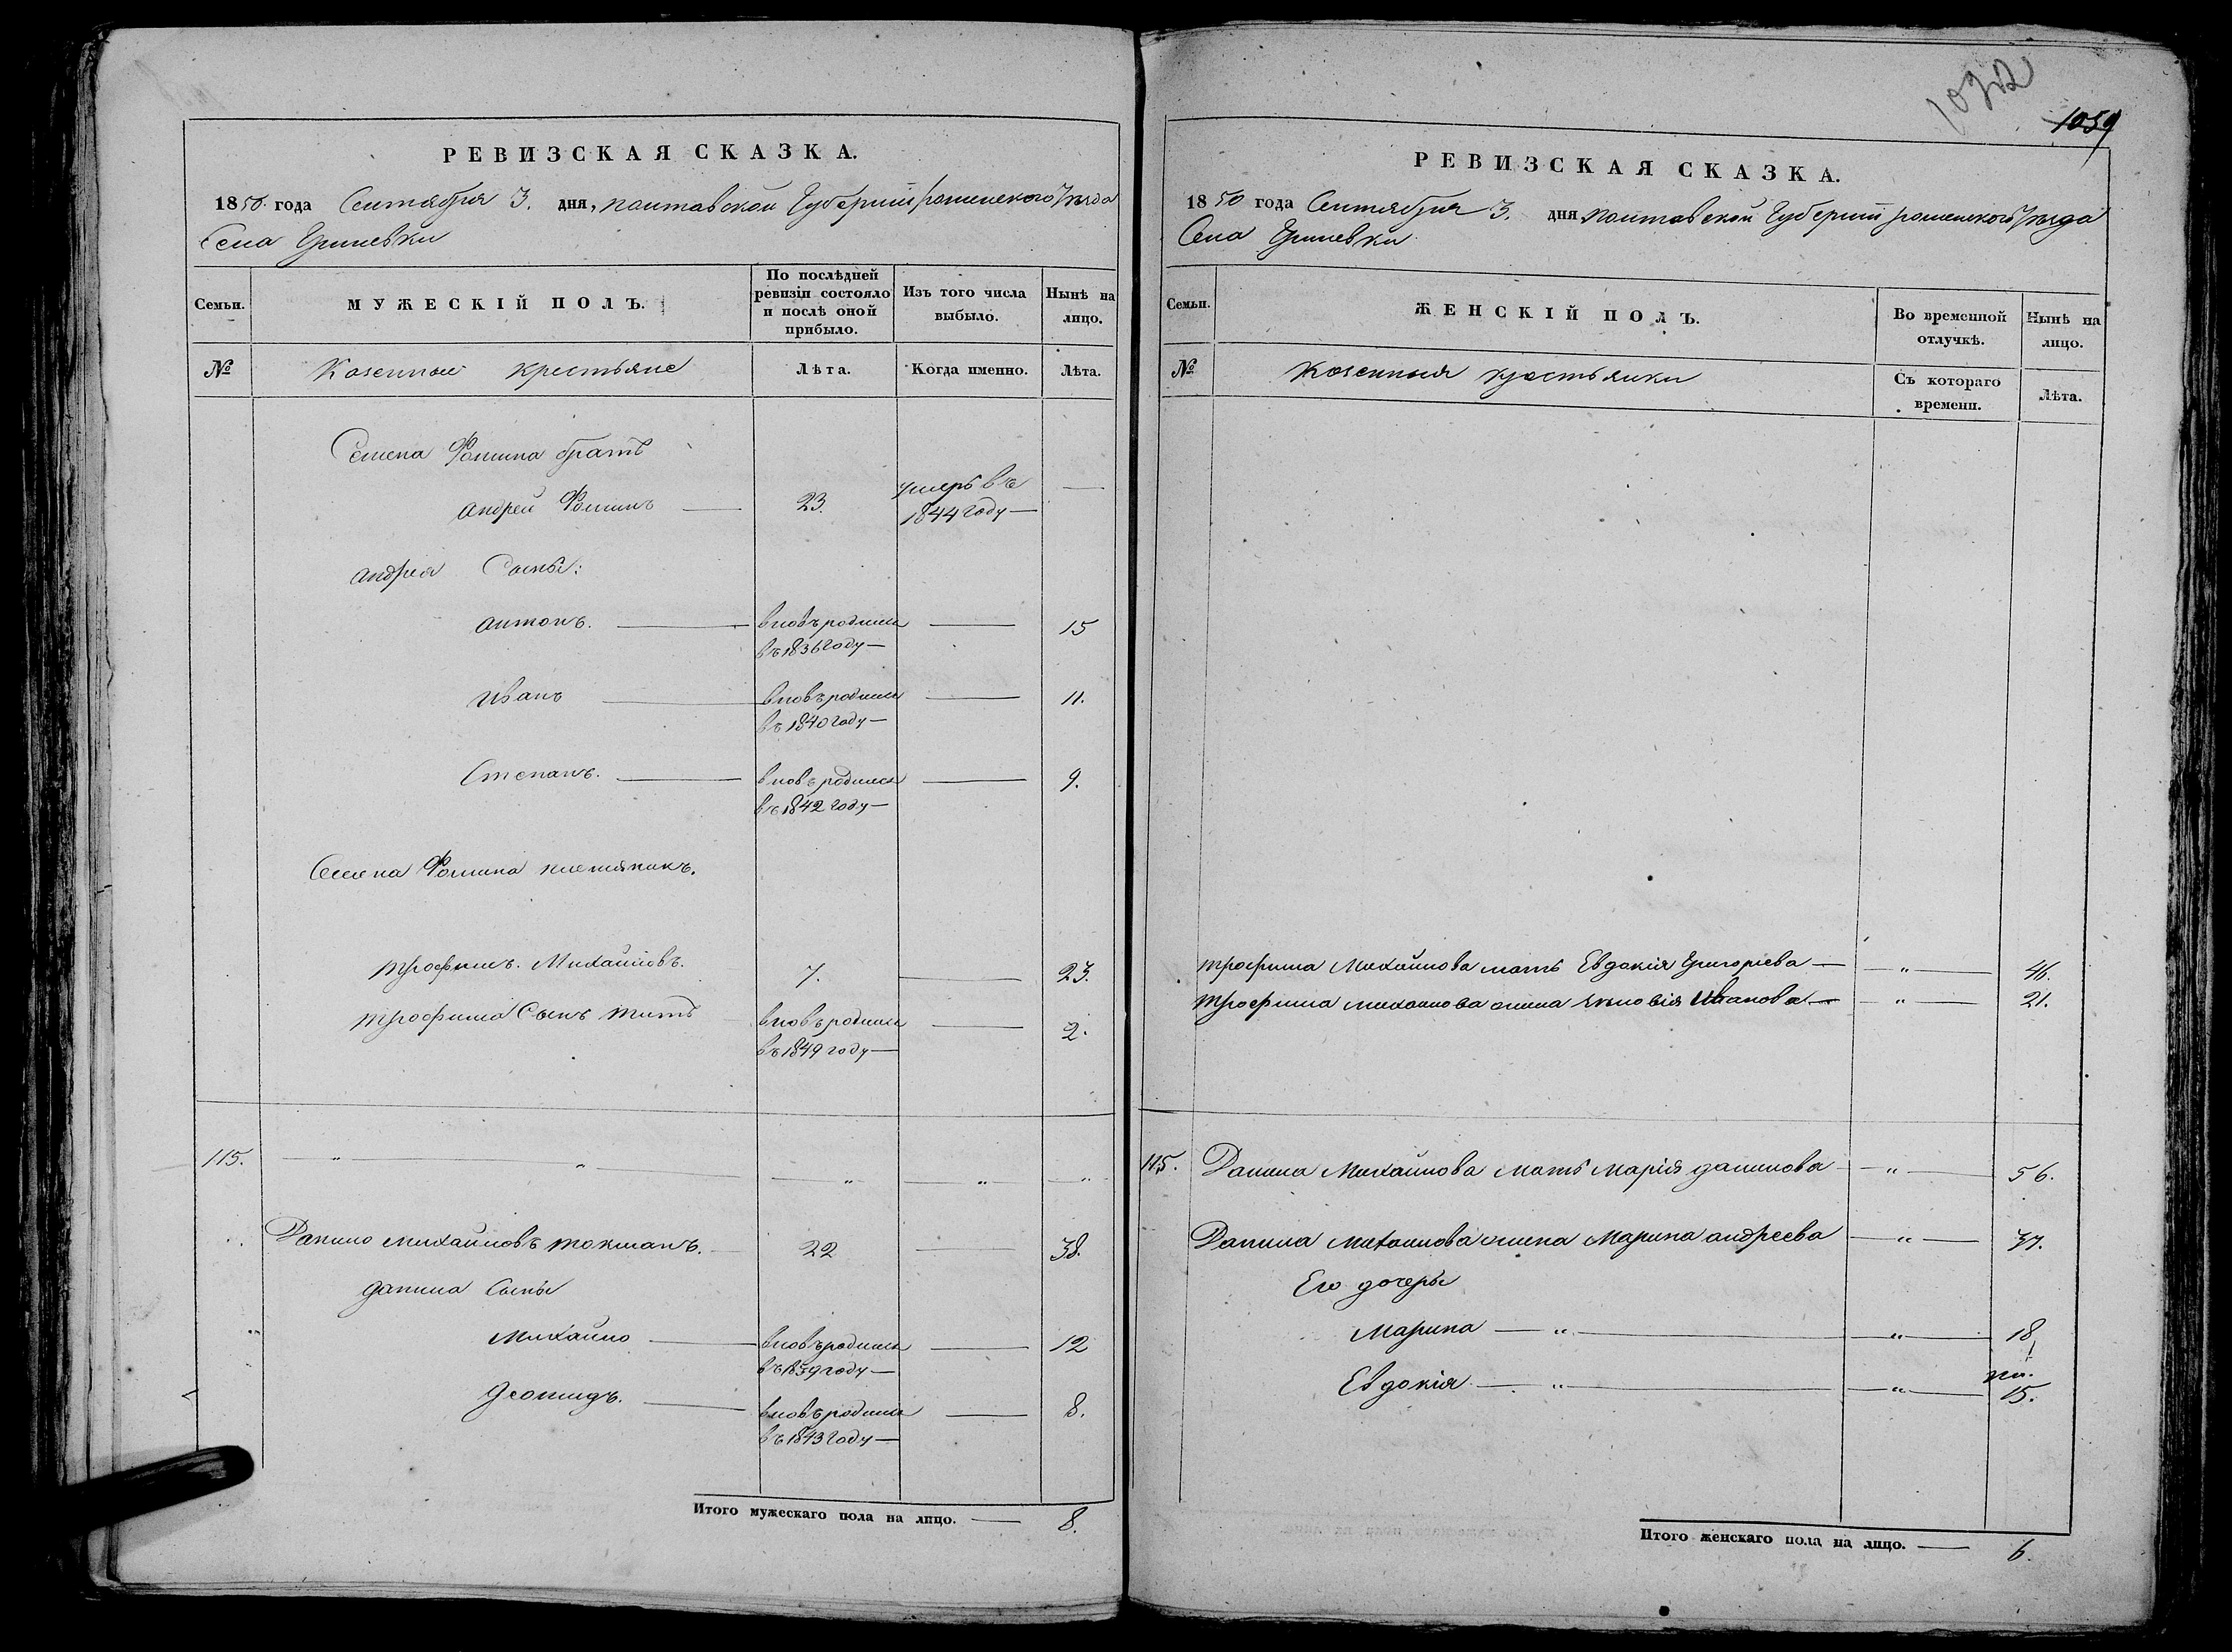 РЕВИЗСКАЯ СКАЗКА.
1850 года Сентября 3. дня, полтавской Губерніи роменского Уезда
Села Гриневки
Семьи.
МУЖЕСКІЙ ПОЛЪ.
По послѣдней ревизіи состояло и послѣ оной прибыло.
Изъ того числа выбыло.
Нынѣ на лицо.
№
Козенные крестьяне
Лѣта.
Когда именно.
Лѣта.
Семена Фомина братъ
андрей Фоминъ — 23. умеръ въ —
1844 году —
андрея Сыны:
антонъ. — вновъ родился — 15
въ 1836 году —
иванъ — вновъ родился — 11.
въ 1840 году —
Степанъ. — вновъ родился — 9.
въ 1842 году —
Семена Фомина племяникъ.
трофимъ. Михайловъ. 7. — 23.
трофима Сынъ титъ вновъ родился — 2.
въ 1849 году —
115. — „ — „ — „ — „ — „
Данило михайловъ токманъ. — 22 — 38.
данила Сыны
Михайло — вновъ родился — 12
въ 1839 году —
Леонидъ. — вновъ родился — 8.
въ 1843 году —
Итого мужескаго пола на лицо. — 8.
1032
1059
РЕВИЗСКАЯ СКАЗКА.
1850 года Сентября 3. дня полтавской Губерніи роменского Уезда
Села Гриневки
Семьи.
ЖЕНСКІЙ ПОЛЪ.
Во временной отлучкѣ.
Нынѣ на лицо.
№
Козенныя крестьянки
Съ котораго времени.
Лѣта.
трофима Михайлова мать Евдокія Григоріева — „ — 46.
трофима михайлова жена Иванова — „ — 21.
115. Данила Михайлова мать Марія данилова — „ — 56.
Данила михайлова жена Марина андреева — „ — 37.
Его дочеры
Марина — „ — „ — 18
Евдокія — „ — „ — 15.
Итого женскаго пола на лицо. — 6.